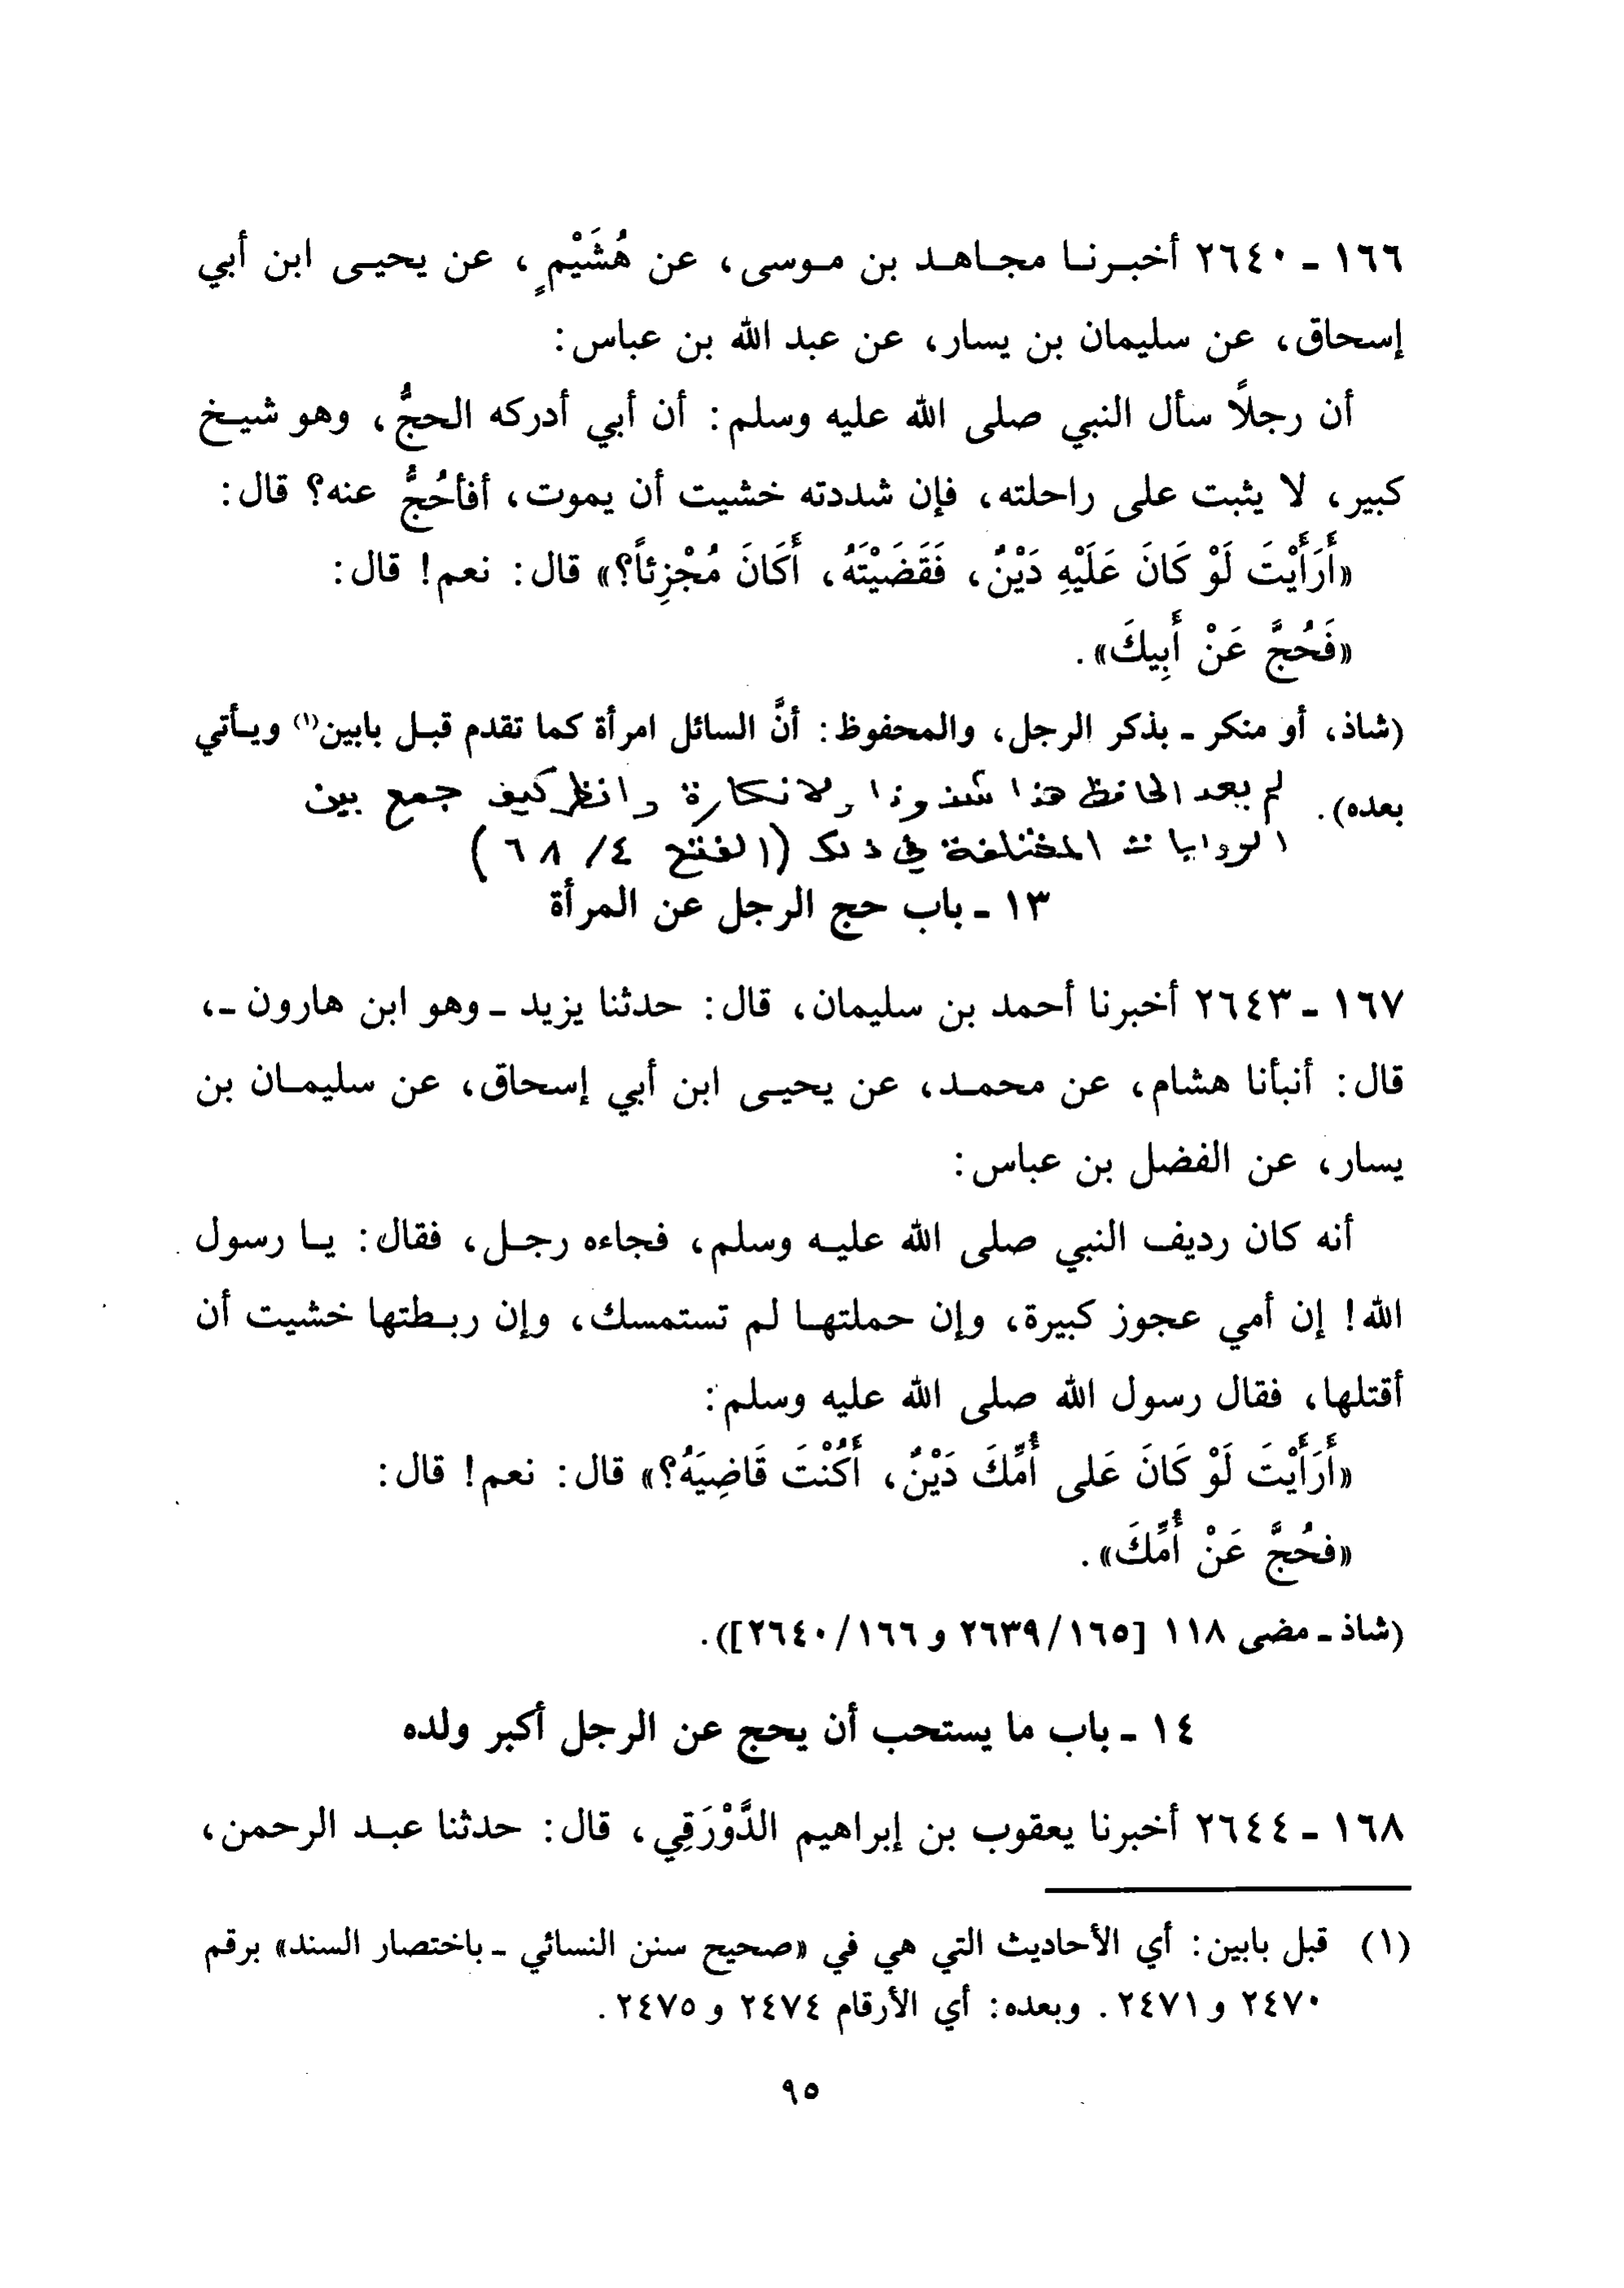 ١٦٦ ـ ٢٦٤٠ أخبرنا مجاهد بن موسى، عن هُشَيْمٍ، عن يحيى ابن أبي
إسحاق، عن سليمان بن يسار، عن عبد الله بن عباس:
أن رجلاً سأل النبي صلى الله عليه وسلم: أن أبي أدركه الحجُّ، وهو شيخ
كبير، لا يثبت على راحلته، فإن شددته خشيت أن يموت، أفأحُجُّ عنه؟ قال:
«أَرَأَيْتَ لَوْ كَانَ عَلَيْهِ دَيْنٌ، فَقَضَيْتَهُ، أَكَانَ مُجْزِئاً؟» قال: نعم! قال:
«فَحُجَّ عَنْ أَبِيكَ».
(شاذ، أو منكر ـ بذكر الرجل، والمحفوظ: أنَّ السائل امرأة كما تقدم قبل بابين(١) ويأتي
بعده). لم يعد الحافظ هذا شذوذا ولا نكارة وانظر كيف جمع بين
الروايات المختلفة في ذلك (الفتح ٤/ ٦٨)
١٣ ـ باب حج الرجل عن المرأة
١٦٧ ـ ٢٦٤٣ أخبرنا أحمد بن سليمان، قال: حدثنا يزيد ـ وهو ابن هارون ـ،
قال: أنبأنا هشام، عن محمد، عن يحيى ابن أبي إسحاق، عن سليمان بن
يسار، عن الفضل بن عباس:
أنه كان رديف النبي صلى الله عليه وسلم، فجاءه رجل، فقال: يا رسول
الله! إن أمي عجوز كبيرة، وإن حملتها لم تستمسك، وإن ربطتها خشيت أن
أقتلها، فقال رسول الله صلى الله عليه وسلم:
«أَرَأَيْتَ لَوْ كَانَ عَلى أُمِّكَ دَيْنٌ، أَكُنْتَ قَاضِيَهُ؟» قال: نعم! قال:
«فحُجَّ عَنْ أُمِّكَ».
(شاذ ـ مضى ١١٨ [١٦٥/٢٦٣٩ و ١٦٦/٢٦٤٠]).
١٤ ـ باب ما يستحب أن يحج عن الرجل أكبر ولده
١٦٨ ـ ٢٦٤٤ أخبرنا يعقوب بن إبراهيم الدَّوْرَقِي، قال: حدثنا عبد الرحمن،
(١) قبل بابين: أي الأحاديث التي هي في «صحيح سنن النسائي ـ باختصار السند» برقم
٢٤٧٠ و ٢٤٧١. وبعده: أي الأرقام ٢٤٧٤ و ٢٤٧٥.
٩٥